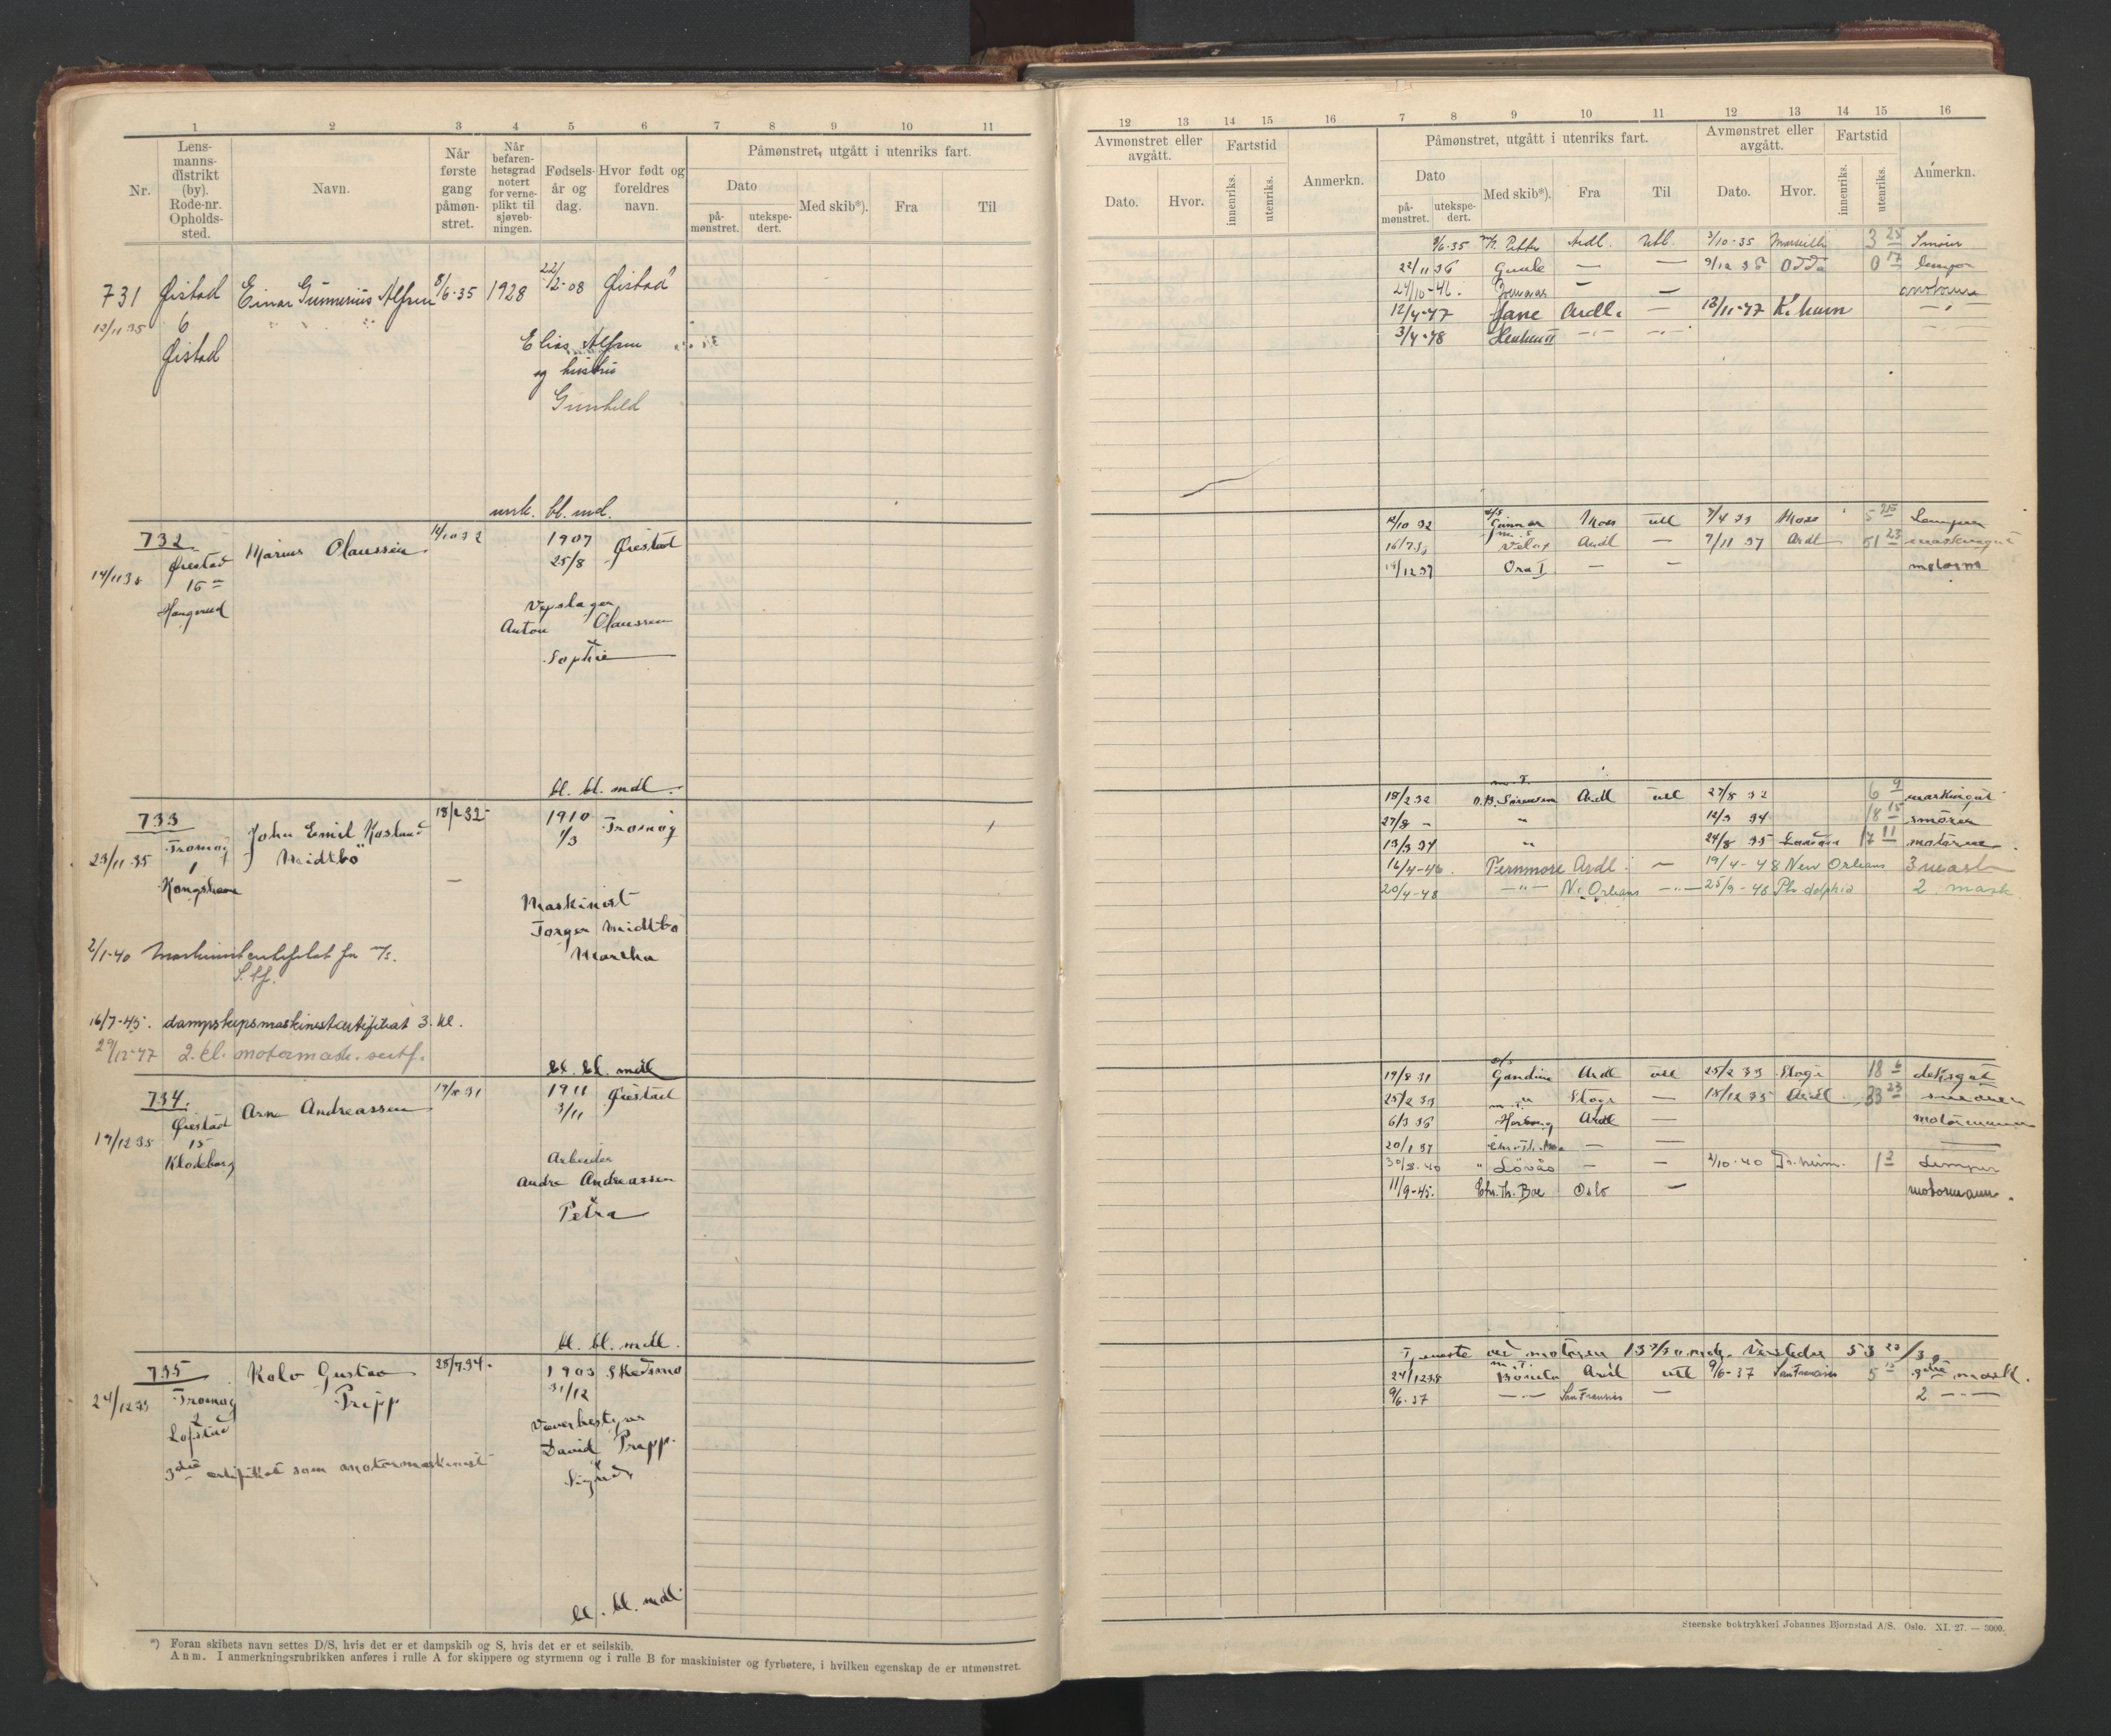 1 2 3 4 5 6 7 8 9 10 11
Nr.
Lens-
manns-
distrikt
(by).
Rode-nr.
Opholds-
sted.
Navn.
Når
første
gang
påmøn-
stret.
Når
befaren-
hetsgrad
notert
for verne-
plikt til
sjøveb-
ningen.
Fødsels-
år og
dag.
Hvor født og
foreldres
navn.
Påmønstret, utgått i utenriks fart.
Dato
på-
mønstret.
utekspe-
dert.
Med skib*).
Fra
Til
731 Øistad Einar Gunnerius Alfsen 8/6-35 1928 22/12-08 Øistad
13/11 35 6
Øistad
Elias Alfsen
og hustru
Gunhild
bl. md.
732 Marius Olaussen 14/10 32 1907 Øiestad
14/11 35 Øiestad 25/8
15
Anton Olaussen
Sophie
bl. bl. mdl.
733 John Emil Kosland 18/2 32 1910 Tromøy
23/11 35 Tromøy Meidtbø 1/3
1
Kongshavn
Maskinist
Torger Meidtbø
Martha
2/1-40
16/7-45. dampskipsmaskinistcertifikat 3. kl.
29/12-47 2. kl. motormask. sertf.
bl. bl. mdl
734. Arne Andreassen 19/8 31 1911 Øiestad
19/12 35 Øiestad 3/11
15
Klodeborg
Arbeider
Andre Andreassen
Petra
bl. bl. mdl.
735 Rolv Gustav 28/7 34. 1903 Skedsmo
24/12 35 Tromøy Pripp 31/12
2
Lofstad
David Pripp.
Sigrid
3die certifikat som motormaskinist
bl. bl. mdl
*) Foran skibets navn settes D/S, hvis det er et dampskib og S, hvis det er et seilskib.
Anm. I anmerkningsrubrikken anføres i rulle A for skippere og styrmenn og i rulle B for maskinister og fyrbøtere, i hvilken egenskap de er utmønstret.
12 13 14 15 16 7 8 9 10 11 12 13 14 15 16
Avmønstret eller
avgått.
Dato.
Hvor.
Fartstid
innenriks.
utenriks.
Anmerkn.
Påmønstret, utgått i utenriks fart.
Dato
på-
mønstret.
utekspe-
dert.
Med skib*).
Fra
Til
Avmønstret eller
avgått.
Dato.
Hvor.
Fartstid
innenriks.
utenriks.
Anmerkn.
8/6-35 Petter Ardl. Utl. 3/10-35 Marseille 3 25 Smører
22/11 36 — — 9/12 36 Odda 0 17 lemper
24/10-46. — — motormann
12/4-47 Jane Ardl. — 13/11-47 K.havn —
3/4-48 —"— —"—
14/10 32 Gunnar Moss utl 9/4 33 Moss 5 25 Lemper
16/7 33 m.s Velox Ardl — 9/11 37 Ardl 51 23 maskingut
Ora I — — motorm
18/2 32 m.T. O.B. Sørensen Ardl utl 27/8 32 6 9 maskingut
27/8 — " 12/3 34 18 15 smører
13/3 34 " 24/8 35 17 11 motorm.
16/4-46. Fernmore Ardl. — 19/4-48 New Orleans 3 mask
20/4-48 —"— N. Orleans —"— 25/9-48 2. mask
19/8 31 Gondia Ardl utl 25/2 33 18 6 deksgut
25/2 33 " — 18/12 35 Ardl 33 23
6/3 36 Ardl — motormann
20/1 37 — —
30/8-40 " Løvås — — 2/10-40 Tr.heim. 1 2 Lemper
11/9-45. Chr. Th. Boe Oslo — motormann.
24/12 35 m.T. Ardl utl 9/6-37 San Francisco 5 3die mask.
9/6.37 —"— — 2 —"—
Steenske boktrykkeri Johannes Bjørnstad A/S. Oslo. XI. 27. — 3000.